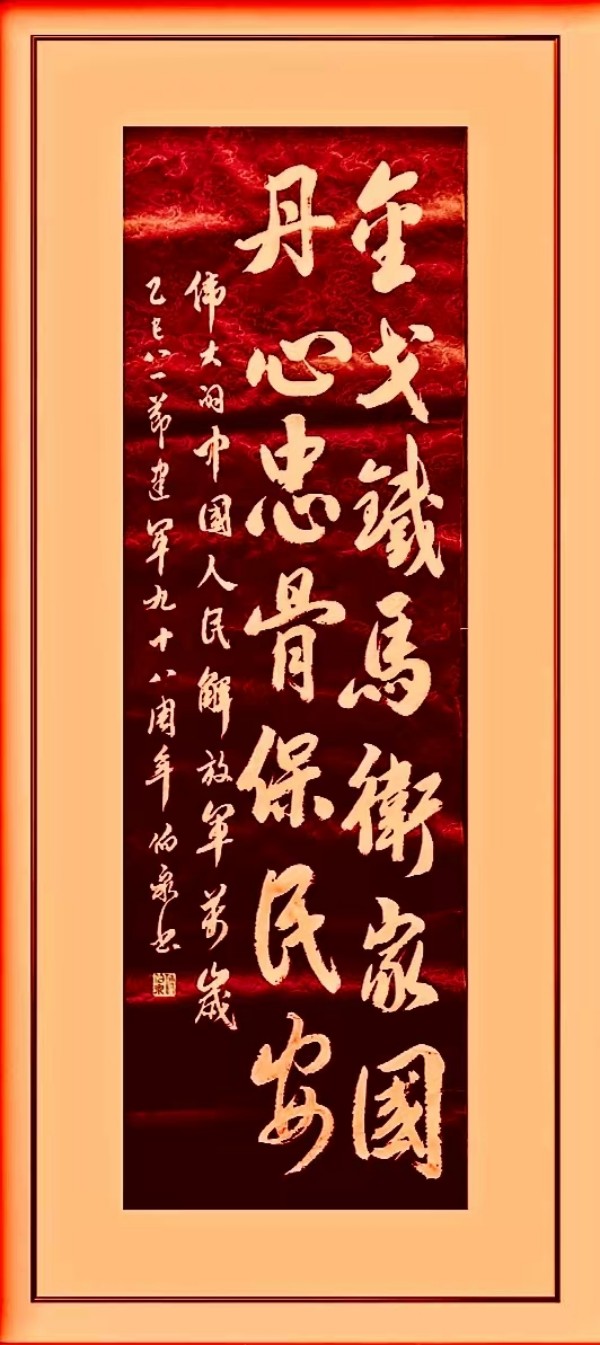 金戈鐵馬衛家國
丹心忠骨保民安
偉大的中國人民解放軍萬歲
乙巳八一節建軍九十八周年 伯泉书